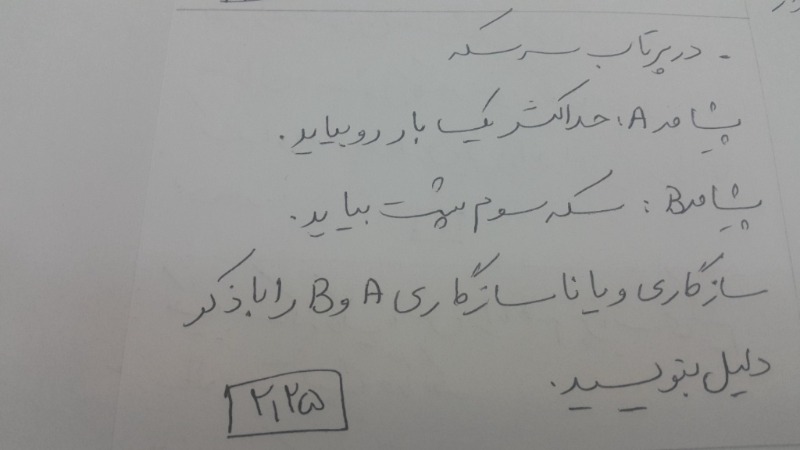 - در پرتاب سه سکه
پیشامد A: حداکثر یک بار رو بیاید.
پیشامد B: سکه سوم پشت بیاید.
سازگاری و یا ناسازگاری A و B را با ذکر
دلیل بنویسید.
۲,۲۵